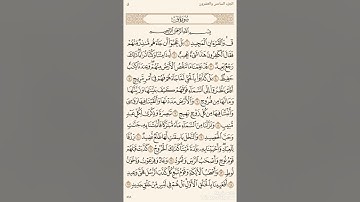 الجزء السادس والعشرون
سُورَةُ قٓ
بِسْمِ ٱللَّهِ ٱلرَّحْمَٰنِ ٱلرَّحِيمِ
قٓ ۚ وَٱلْقُرْءَانِ ٱلْمَجِيدِ ١ بَلْ عَجِبُوٓا۟ أَن جَآءَهُم مُّنذِرٌ مِّنْهُمْ
فَقَالَ ٱلْكَٰفِرُونَ هَٰذَا شَىْءٌ عَجِيبٌ ٢ أَءِذَا مِتْنَا وَكُنَّا تُرَابًا ۖ ذَٰلِكَ
رَجْعٌۢ بَعِيدٌ ٣ قَدْ عَلِمْنَا مَا تَنقُصُ ٱلْأَرْضُ مِنْهُمْ ۖ وَعِندَنَا كِتَٰبٌ
حَفِيظٌۢ ٤ بَلْ كَذَّبُوا۟ بِٱلْحَقِّ لَمَّا جَآءَهُمْ فَهُمْ فِىٓ أَمْرٍ مَّرِيجٍ ٥
أَفَلَمْ يَنظُرُوٓا۟ إِلَى ٱلسَّمَآءِ فَوْقَهُمْ كَيْفَ بَنَيْنَٰهَا وَزَيَّنَّٰهَا
وَمَا لَهَا مِن فُرُوجٍ ٦ وَٱلْأَرْضَ مَدَدْنَٰهَا وَأَلْقَيْنَا فِيهَا رَوَٰسِىَ
وَأَنۢبَتْنَا فِيهَا مِن كُلِّ زَوْجٍۭ بَهِيجٍ ٧ تَبْصِرَةً وَذِكْرَىٰ لِكُلِّ عَبْدٍ
مُّنِيبٍ ٨ وَنَزَّلْنَا مِنَ ٱلسَّمَآءِ مَآءً مُّبَٰرَكًا فَأَنۢبَتْنَا بِهِۦ جَنَّٰتٍ
وَحَبَّ ٱلْحَصِيدِ ٩ وَٱلنَّخْلَ بَاسِقَٰتٍ لَّهَا طَلْعٌ نَّضِيدٌ ١٠ رِّزْقًا
لِّلْعِبَادِ ۖ وَأَحْيَيْنَا بِهِۦ بَلْدَةً مَّيْتًا ۚ كَذَٰلِكَ ٱلْخُرُوجُ ١١ كَذَّبَتْ قَبْلَهُمْ
قَوْمُ نُوحٍ وَأَصْحَٰبُ ٱلرَّسِّ وَثَمُودُ ١٢ وَعَادٌ وَفِرْعَوْنُ وَإِخْوَٰنُ
لُوطٍ ١٣ وَأَصْحَٰبُ ٱلْأَيْكَةِ وَقَوْمُ تُبَّعٍ ۚ كُلٌّ كَذَّبَ ٱلرُّسُلَ فَحَقَّ وَعِيدِ
١٤ أَفَعَيِينَا بِٱلْخَلْقِ ٱلْأَوَّلِ ۚ بَلْ هُمْ فِى لَبْسٍ مِّنْ خَلْقٍ جَدِيدٍ ١٥